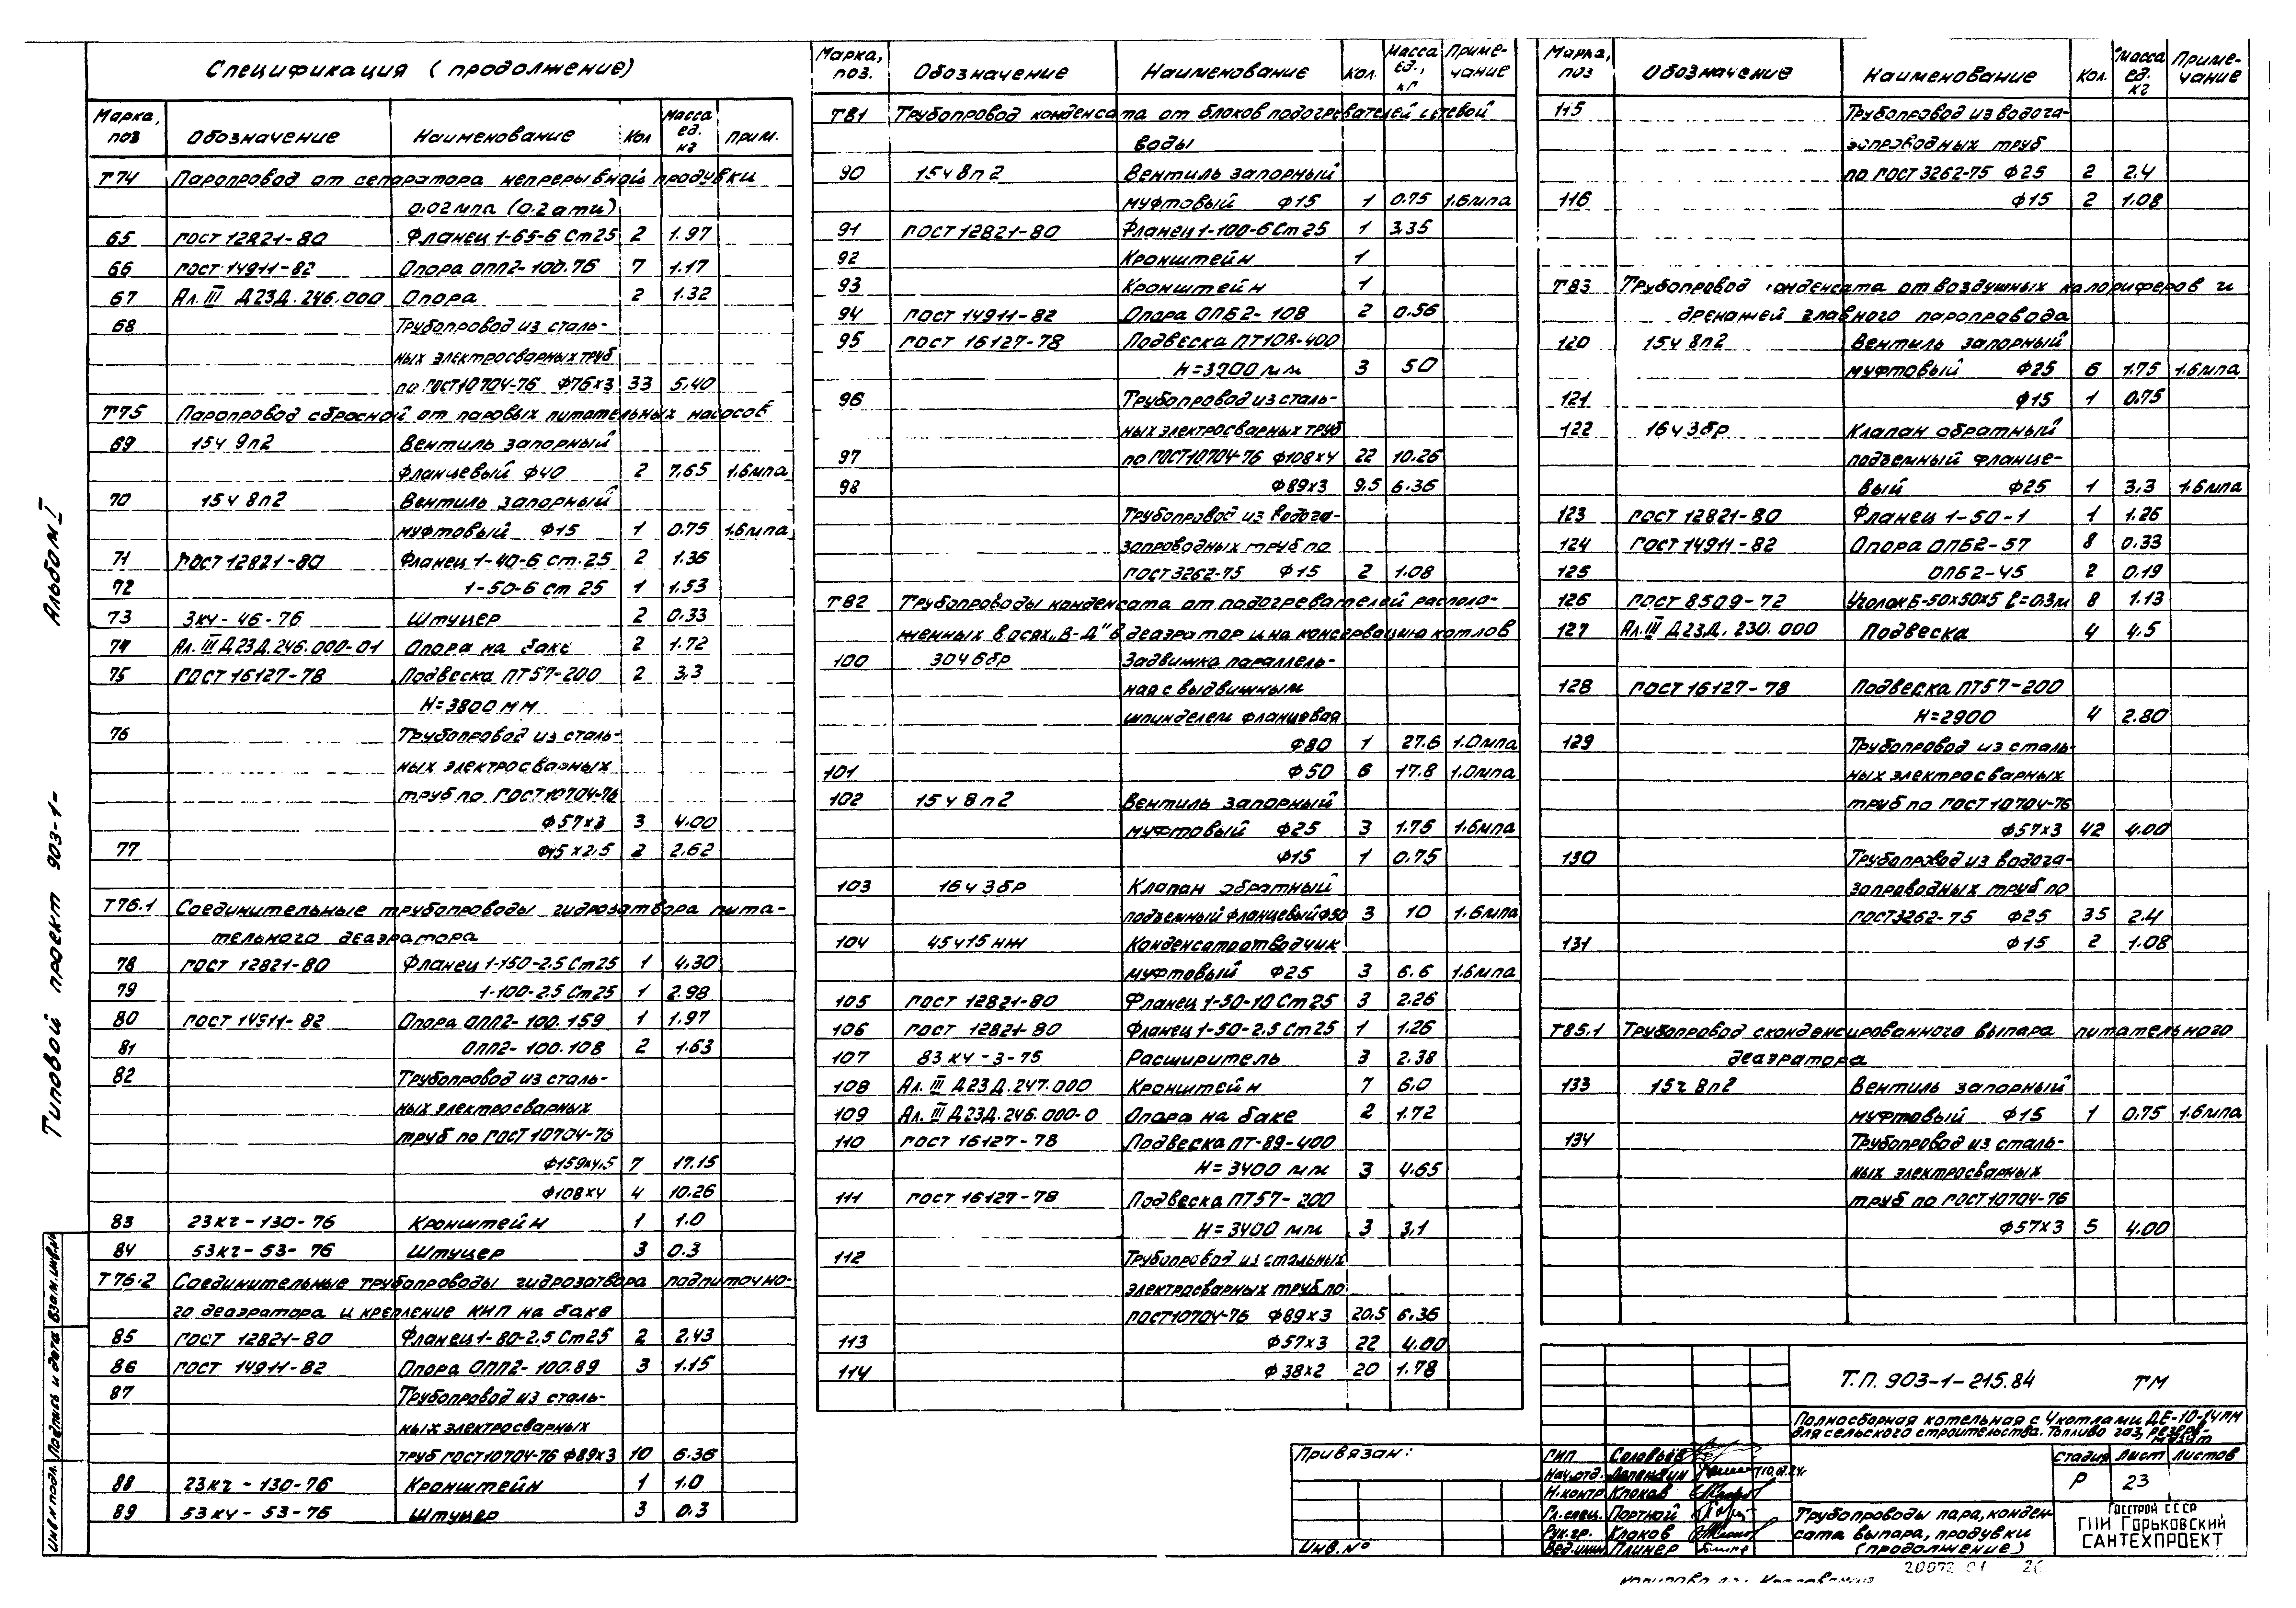 Спецификация (продолжение)
Марка, поз Обозначение Наименование Кол Масса ед. кг Прим.
Т74 Паропровод от сепаратора непрерывной продувки
0.02 мпа (0.2 ати)
65 ГОСТ 12821-80 Фланец 1-65-6 Ст 25 2 1.97
66 ГОСТ 14911-82 Опора ОПП2-100.76 7 1.17
67 Ал. III Д23Д.246.000 Опора 2 1.32
68 Трубопровод из сталь-
ных электросварных труб
по ГОСТ 10704-76 ф76х3 33 5.40
Т75 Паропровод сбросной от паровых питательных насосов
69 15ч 9п2 Вентиль запорный
фланцевый ф40 2 7.65 1.6мпа
70 15ч 8п2 Вентиль запорный
муфтовый ф15 1 0.75 1.6мпа
71 ГОСТ 12821-80 Фланец 1-40-6 ст.25 2 1.36
72 1-50-6 ст 25 1 1.53
73 3кч-46-76 Штуцер 2 0.33
74 Ал. III Д23Д.246.000-01 Опора на баке 2 1.72
75 ГОСТ 16127-78 Подвеска ПТ57-200 2 3,3
Н=3800 мм
76 Трубопровод из сталь-
ных электросварных
труб по ГОСТ 10704-76
ф57х3 3 4.00
77 ф45х2.5 2 2.62
Т76.1 Соединительные трубопроводы гидрозатвора пита-
тельного деаэратора
78 ГОСТ 12821-80 Фланец 1-150-2.5 Ст25 1 4.30
79 1-100-2.5 Ст25 1 2.98
80 ГОСТ 14911-82 Опора ОПП2-100.159 1 1.97
81 ОПП2-100.108 2 1.63
82 Трубопровод из сталь-
ных электросварных
труб по ГОСТ 10704-76
ф159х4,5 7 17.15
ф108х4 4 10.26
83 23кг-130-76 Кронштейн 1 1.0
84 53кг-53-76 Штуцер 3 0.3
Т76.2 Соединительные трубопроводы гидрозатвора подпиточно-
го деаэратора и крепление КИП на баке
85 ГОСТ 12821-80 Фланец 1-80-2.5 Ст25 2 2.43
86 ГОСТ 14911-82 Опора ОПП2-100.89 3 1.15
87 Трубопровод из сталь-
ных электросварных
труб ГОСТ 10704-76 ф89х3 10 6.36
88 23кг-130-76 Кронштейн 1 1.0
89 53кч-53-76 Штуцер 3 0.3
Марка, поз. Обозначение Наименование Кол. Масса ед., кг Приме-чание
Т81 Трубопровод конденсата от блоков подогревателей сетевой
воды
90 15ч 8п2 Вентиль запорный
муфтовый ф15 1 0.75 1.6мпа
91 ГОСТ 12821-80 Фланец 1-100-6 Ст 25 1 3,35
92 Кронштейн 1
93 Кронштейн 1
94 ГОСТ 14911-82 Опора ОПБ2-108 2 0.56
95 ГОСТ 16127-78 Подвеска ПТ108-400
Н=3900 мм 3 50
96 Трубопровод из сталь-
ных электросварных труб
97 по ГОСТ 10704-76 ф108х4 22 10.26
98 ф89х3 9.5 6.36
Трубопровод из водога-
зопроводных труб по
ГОСТ 3262-75 ф15 2 1.08
Т82 Трубопроводы конденсата от подогревателей располо-
женных в осях „В-Д" в деаэратор и на консервацию котлов
100 30ч 6бр Задвижка параллель-
ная с выдвижным
шпинделем фланцевая
ф80 1 27.6 1.0мпа
101 ф50 6 17.8 1.0мпа
102 15ч 8п2 Вентиль запорный
муфтовый ф25 3 1.75 1.6мпа
ф15 1 0.75
103 16ч 3бр Клапан обратный
подъемный фланцевый ф50 3 10 1.6мпа
104 45ч15нж Конденсатоотводчик
муфтовый ф25 3 6.6 1.6мпа
105 ГОСТ 12821-80 Фланец 1-50-10 Ст25 3 2.26
106 ГОСТ 12821-80 Фланец 1-50-2.5 Ст25 1 1.26
107 83кч-3-75 Расширитель 3 2.38
108 Ал. III Д23Д.247.000 Кронштейн 7 6.0
109 Ал. III Д23Д.246.000-0 Опора на баке 2 1.72
110 ГОСТ 16127-78 Подвеска ПТ-89-400
Н=3400 мм 3 4.65
111 ГОСТ 16127-78 Подвеска ПТ57-200
Н=3400 мм 3 3,1
112 Трубопровод из стальных
электросварных труб по
ГОСТ 10704-76 ф89х3 20.5 6.36
113 ф57х3 22 4.00
114 ф38х2 20 1.78
Марка, поз Обозначение Наименование Кол. Масса ед. кг Приме-чание
115 Трубопровод из водога-
зопроводных труб
по ГОСТ 3262-75 ф25 2 2.4
116 ф15 2 1.08
Т83 Трубопровод конденсата от воздушных калориферов и
дренажей главного паропровода
120 15ч 8п2 Вентиль запорный
муфтовый ф25 6 1.75 1.6мпа
121 ф15 1 0.75
122 16ч 3бр Клапан обратный
подъемный фланце-
вый ф25 1 3,3 1.6мпа
123 ГОСТ 12821-80 Фланец 1-50-1 1 1.26
124 ГОСТ 14911-82 Опора ОПБ2-57 8 0.33
125 ОПБ2-45 2 0.19
126 ГОСТ 8509-72 Уголок Б-50х50х5 ℓ=0.3м 8 1.13
127 Ал. III Д23Д.230.000 Подвеска 4 4.5
128 ГОСТ 16127-78 Подвеска ПТ57-200
Н=2900 4 2.80
129 Трубопровод из сталь-
ных электросварных
труб по ГОСТ 10704-76
ф57х3 42 4.00
130 Трубопровод из водога-
зопроводных труб по
ГОСТ 3262-75 ф25 35 2.4
131 ф15 2 1.08
Т85.1 Трубопровод сконденсированного выпара питательного
деаэратора
133 15ч 8п2 Вентиль запорный
муфтовый ф15 1 0.75 1.6мпа
134 Трубопровод из сталь-
ных электросварных
труб по ГОСТ 10704-76
ф57х3 5 4.00
Т.П. 903-1-215.84 ТМ
Полносборная котельная с 4 котлами ДЕ-10-14ГМ
для сельского строительства. Топливо газ, резерв-
мазут
Стадия Лист Листов
Р 23
Трубопроводы пара, конден-
сата выпара, продувки
(продолжение)
Госстрой СССР
ГПИ Горьковский
САНТЕХПРОЕКТ
Привязан:
Инв. №
ГИП Соловьев
Нач.отд.
Н.контр Клоков
Гл.спец. Портной
Рук.гр. Клоков
Вед.инж. Плинер
Типовой проект 903-1- Альбом I
Инв.№ подл. Подпись и дата Взам.инв.№
20072 01 26